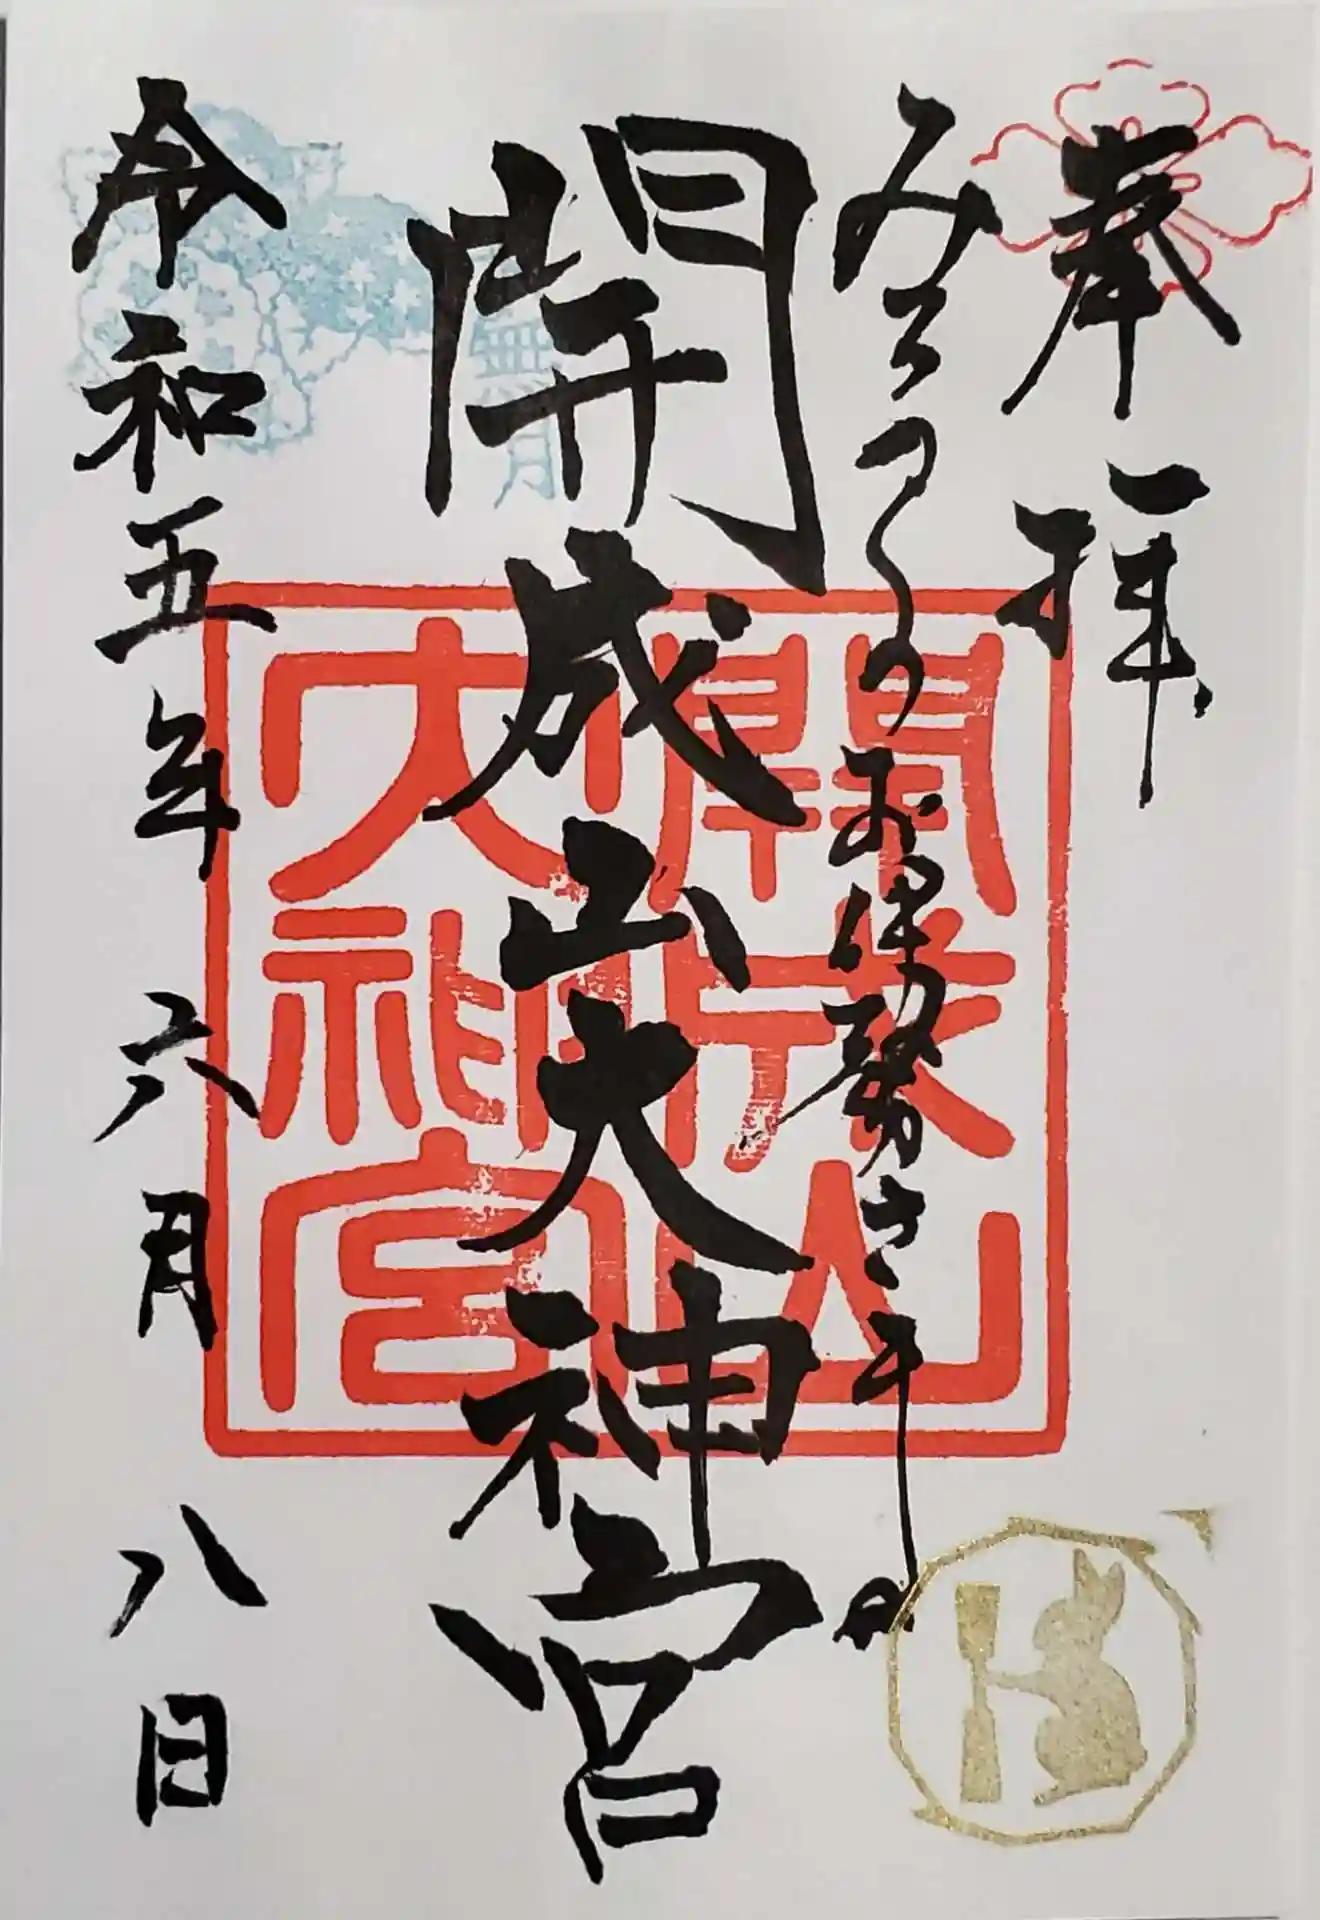 奉拝
みちのくのお伊勢さま
開成山大神宮
令和五年六月八日
開成山
大神宮
無月